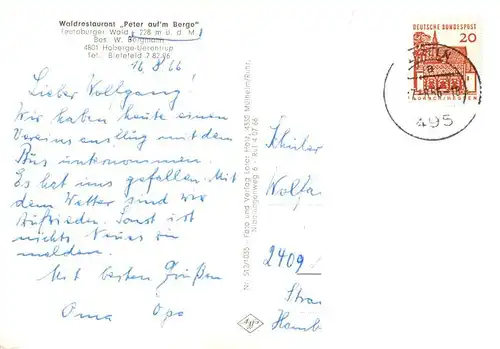 Waldrestaurant „Peter auf'm Berge"
Teutoburger Wald (228 m ü. d. M.)
Bes. W. Bergmann
4801 Hoberge-Uerentrup
Tel. Bielefeld 7 82 96
16.8.66
Lieber Wolfgang!
Wir haben heute einen
Vereinsausflug mit dem
Bus unternommen.
Es hat uns gefallen. Mit
dem Wetter sind wir
zufrieden. Sonst ist
nichts Neues zu
melden.
Mit besten Grüßen
Oma Opa
Foto und Verlag Lotar Holz, 4330 Mülheim/Ruhr,
Nibelungenweg 6 - Ruf 4 07 66
Agfa
DEUTSCHE BUNDESPOST
20
LORSCH/HESSEN
a
495
Schüler
Wolfga
2409
Stra
Hamb